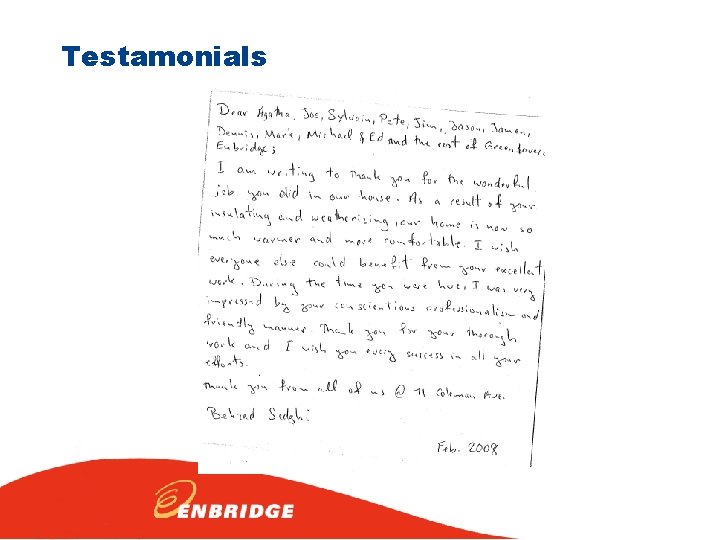 Testamonials
Dear Agatha, Joe, Sylvain, Pete, Jim, Jason, Damon,
Dennis, Mark, Michael & Ed and the rest of Greensaver,
Enbridge;
I am writing to thank you for the wonderful
job you did in our house. As a result of your
insulating and weatherizing, our home is now so
much warmer and more comfortable. I wish
everyone else could benefit from your excellent
work. During the time you were here, I was very
impressed by your conscientious professionalism and
friendly manner. Thank you for your thorough
work and I wish you every success in all your
efforts.
Thank you from all of us @ 71 Coleman Ave.
Behzad Sedghi
Feb. 2008
ENBRIDGE